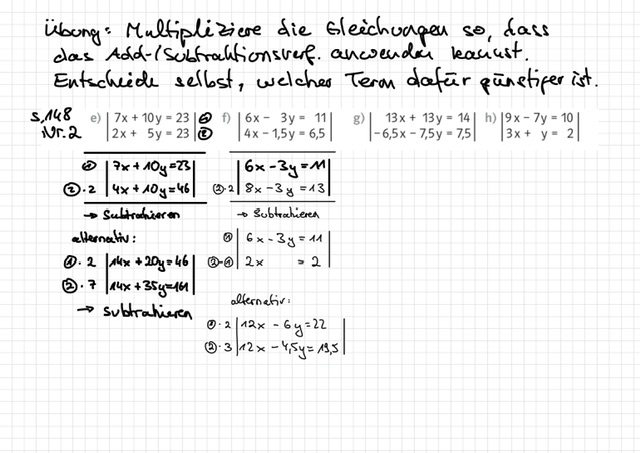 Übung: Multipliziere die Gleichungen so, dass
das Add-/Subtraktionsverf. anwenden kannst.
Entscheide selbst, welcher Term dafür günstiger ist.
S.148 e) | 7x + 10y = 23 | ① f) | 6x - 3y = 11 | g) | 13x + 13y = 14 | h) | 9x - 7y = 10 |
Nr.2 | 2x + 5y = 23 | ② | 4x - 1,5y = 6,5 | | -6,5x - 7,5y = 7,5 | | 3x + y = 2 |
① | 7x + 10y = 23 | | 6x - 3y = 11 |
② · 2 | 4x + 10y = 46 | ② · 2 | 8x - 3y = 13 |
→ Subtrahieren → Subtrahieren
alternativ: ① | 6x - 3y = 11 |
① · 2 | 14x + 20y = 46 | ②-① | 2x = 2 |
② · 7 | 14x + 35y = 161 |
→ Subtrahieren
alternativ:
① · 2 | 12x - 6y = 22 |
② · 3 | 12x - 4,5y = 19,5 |